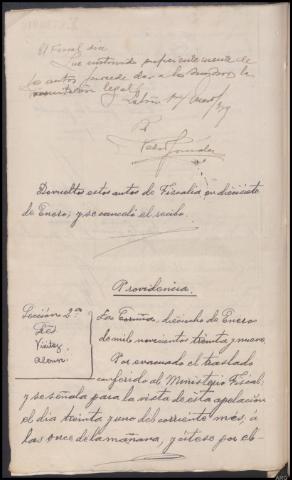 El Fiscal dice
Que instruido suficientemente de
los autos, procede dar a los mismos la
tramitación legal.
P.
Devueltos estos autos de Fiscalía en diecisiete
de Enero; y se canceló el recibo.
Providencia.
Sección 2ª
Sres
La Coruña, dieciocho de Enero
de mil novecientos treinta y nueve.
Por evacuado el traslado
conferido al Ministerio Fiscal,
y se señala para la vista de esta apelación
el día treinta y uno del corriente mes, á
las once de la mañana, y cítese por el-